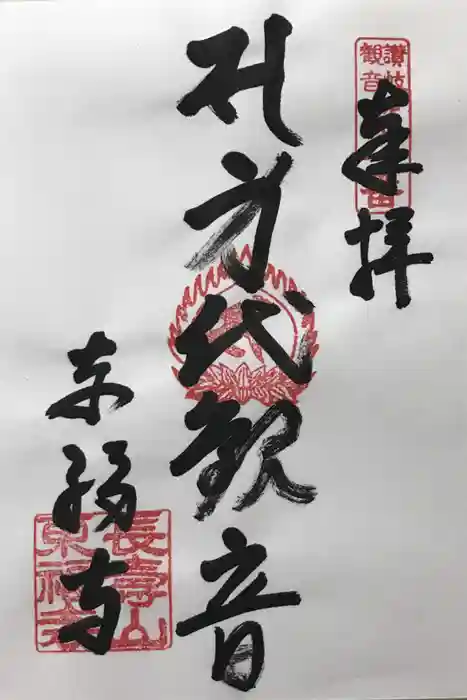 讃岐
観音
奉拝
御身代観音
東福寺
長壽山
東福寺